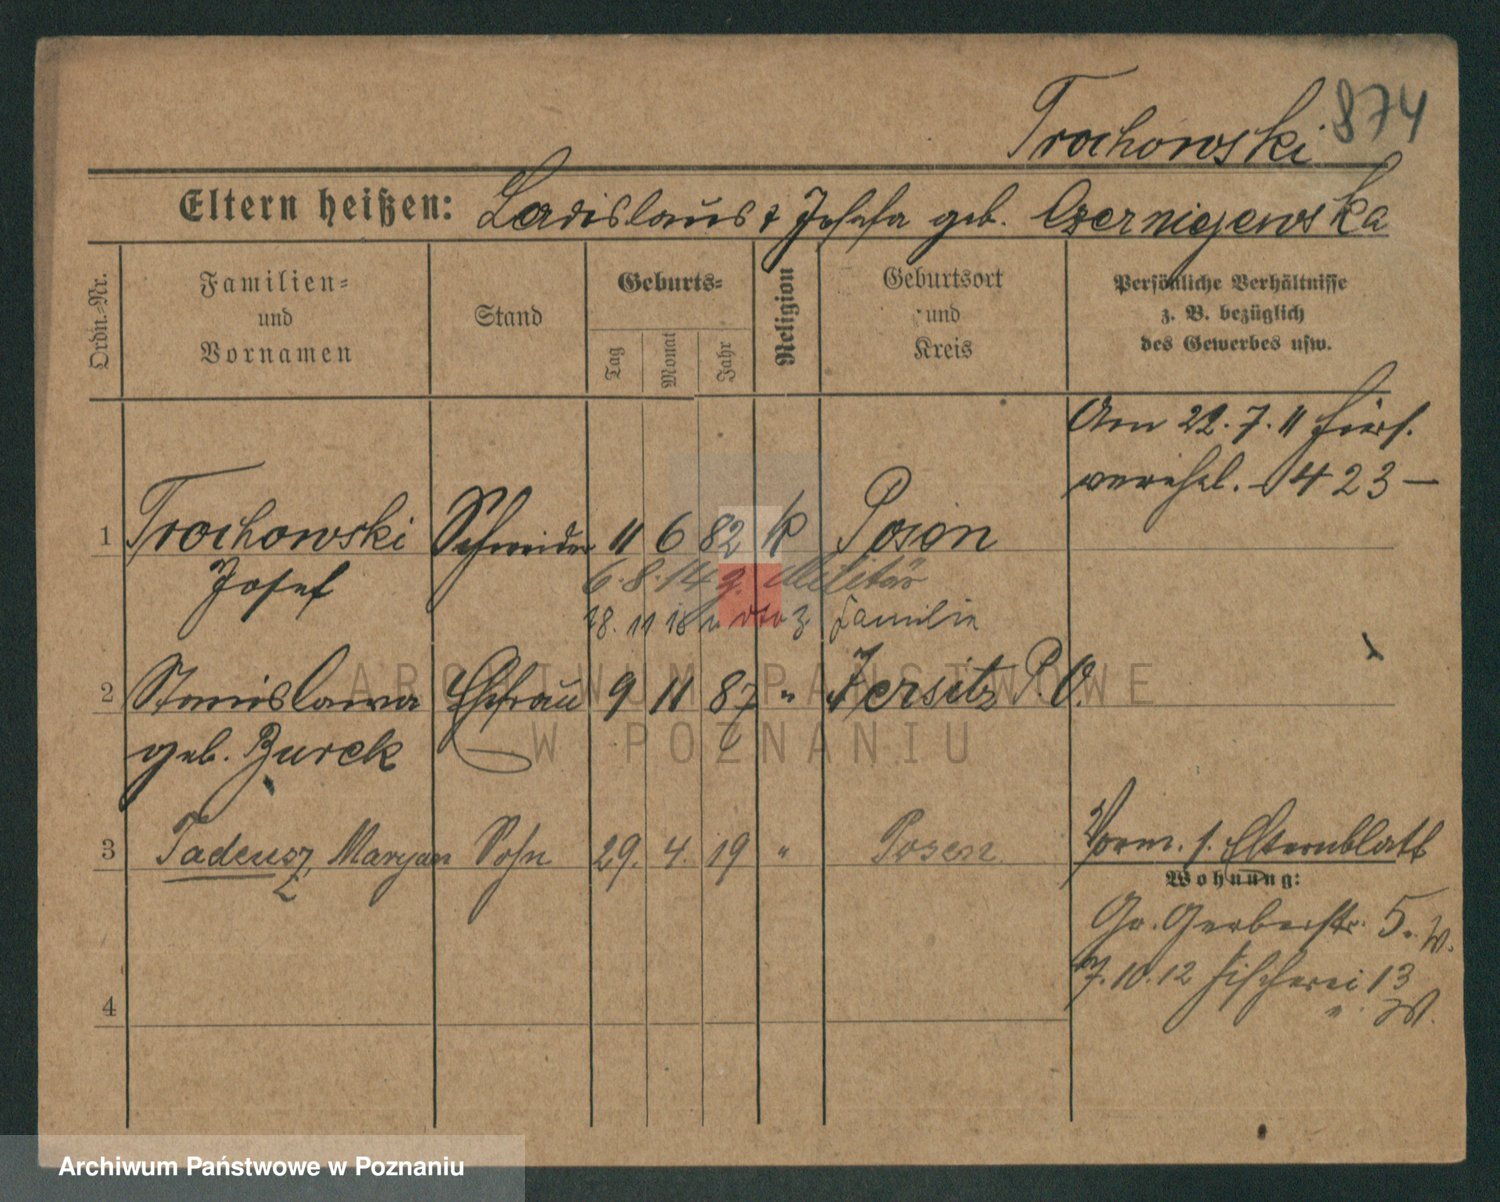 Trochowski 874
Eltern heißen: Ladislaus & Josefa geb. Czerniejewska
Ordn.-Nr.
Familien-
und
Vornamen
Stand
Geburts-
Tag
Monat
Jahr
Religion
Geburtsort
und
Kreis
Persönliche Verhältnisse
z. B. bezüglich
des Gewerbes usw.
Am 22.7.11 hiers.
verehel. - 423 -
1 Trochowski Schneider 11 6 82 k Posen
Josef
6.8.14 g. Militär
28. 11 18 v dto z Familie
2 Stanislawa Ehefrau 9 11 87 " Jersitz P.O.
geb. Burek
3 Tadeusz, Maryan Sohn 29. 4. 19 " Posen
Vorm. s. Elternblatt
Wohnung:
Gr. Gerberstr. 5. W.
7.10.12 Fischerei 13
" W.
4
ARCHIWUM PAŃSTWOWE
W POZNANIU
Archiwum Państwowe w Poznaniu